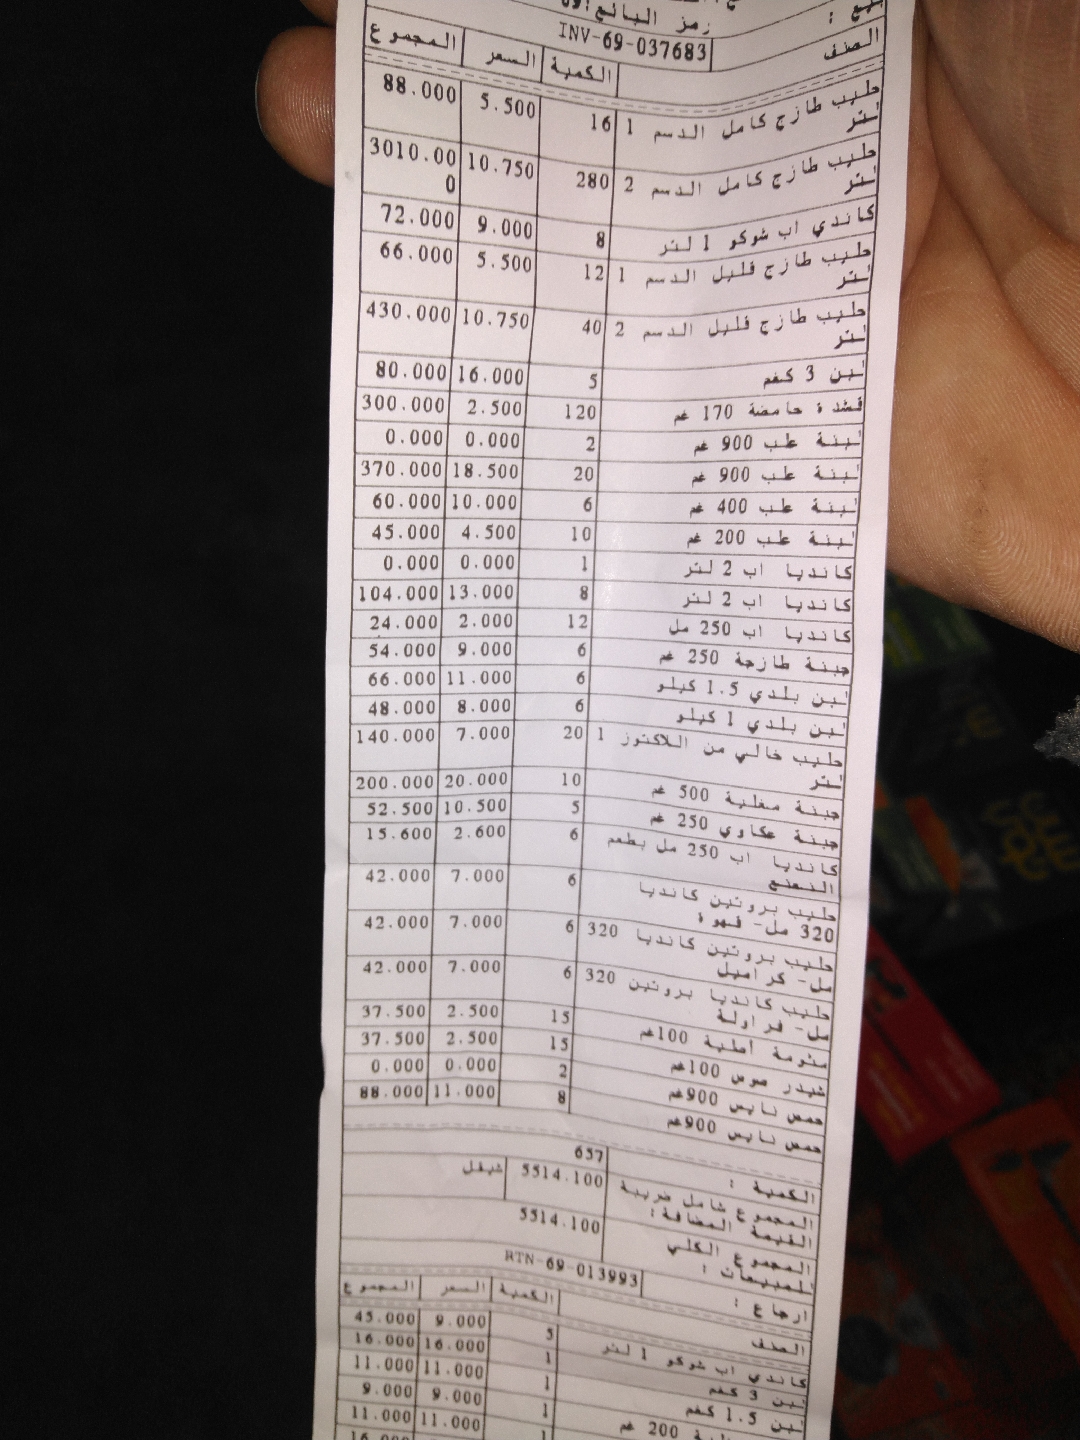 رمز البائع:69
بيع :
INV-69-037683
الصنف الكمية السعر المجموع
حليب طازج كامل الدسم 1 لتر 16 5.500 88.000
حليب طازج كامل الدسم 2 لتر 280 10.750 3010.000
كاندي اب شوكو 1 لتر 8 9.000 72.000
حليب طازج قليل الدسم 1 لتر 12 5.500 66.000
حليب طازج قليل الدسم 2 لتر 40 10.750 430.000
لبن 3 كغم 5 16.000 80.000
قشدة حامضة 170 غم 120 2.500 300.000
لبنة علب 900 غم 2 0.000 0.000
لبنة علب 900 غم 20 18.500 370.000
لبنة علب 400 غم 6 10.000 60.000
لبنة علب 200 غم 10 4.500 45.000
كانديا اب 2 لتر 1 0.000 0.000
كانديا اب 2 لتر 8 13.000 104.000
كانديا اب 250 مل 12 2.000 24.000
جبنة طازجة 250 غم 6 9.000 54.000
لبن بلدي 1.5 كيلو 6 11.000 66.000
لبن بلدي 1 كيلو 6 8.000 48.000
حليب خالي من اللاكتوز 1 لتر 20 7.000 140.000
جبنة مغلية 500 غم 10 20.000 200.000
جبنة عكاوي 250 غم 5 10.500 52.500
كانديا اب 250 مل بطعم النعنع 6 2.600 15.600
حليب بروتين كانديا 320 مل- قهوة 6 7.000 42.000
حليب بروتين كانديا 320 مل- كراميل 6 7.000 42.000
حليب كانديا بروتين 320 مل- فراولة 6 7.000 42.000
مثومة أصلية 100غم 15 2.500 37.500
شيدر صوص 100غم 15 2.500 37.500
حمص نابس 900غم 2 0.000 0.000
حمص نابس 900غم 8 11.000 88.000
الكمية : 657
المجموع شامل ضريبة القيمة المضافة: 5514.100 شيقل
المجموع الكلي للمبيعات : 5514.100
ارجاع :
RTN-69-013993
الصنف الكمية السعر المجموع
كاندي اب شوكو 1 لتر 5 9.000 45.000
لبن 3 كغم 1 16.000 16.000
لبن 1.5 كغم 1 11.000 11.000
200 غم 1 9.000 9.000
11.000 11.000